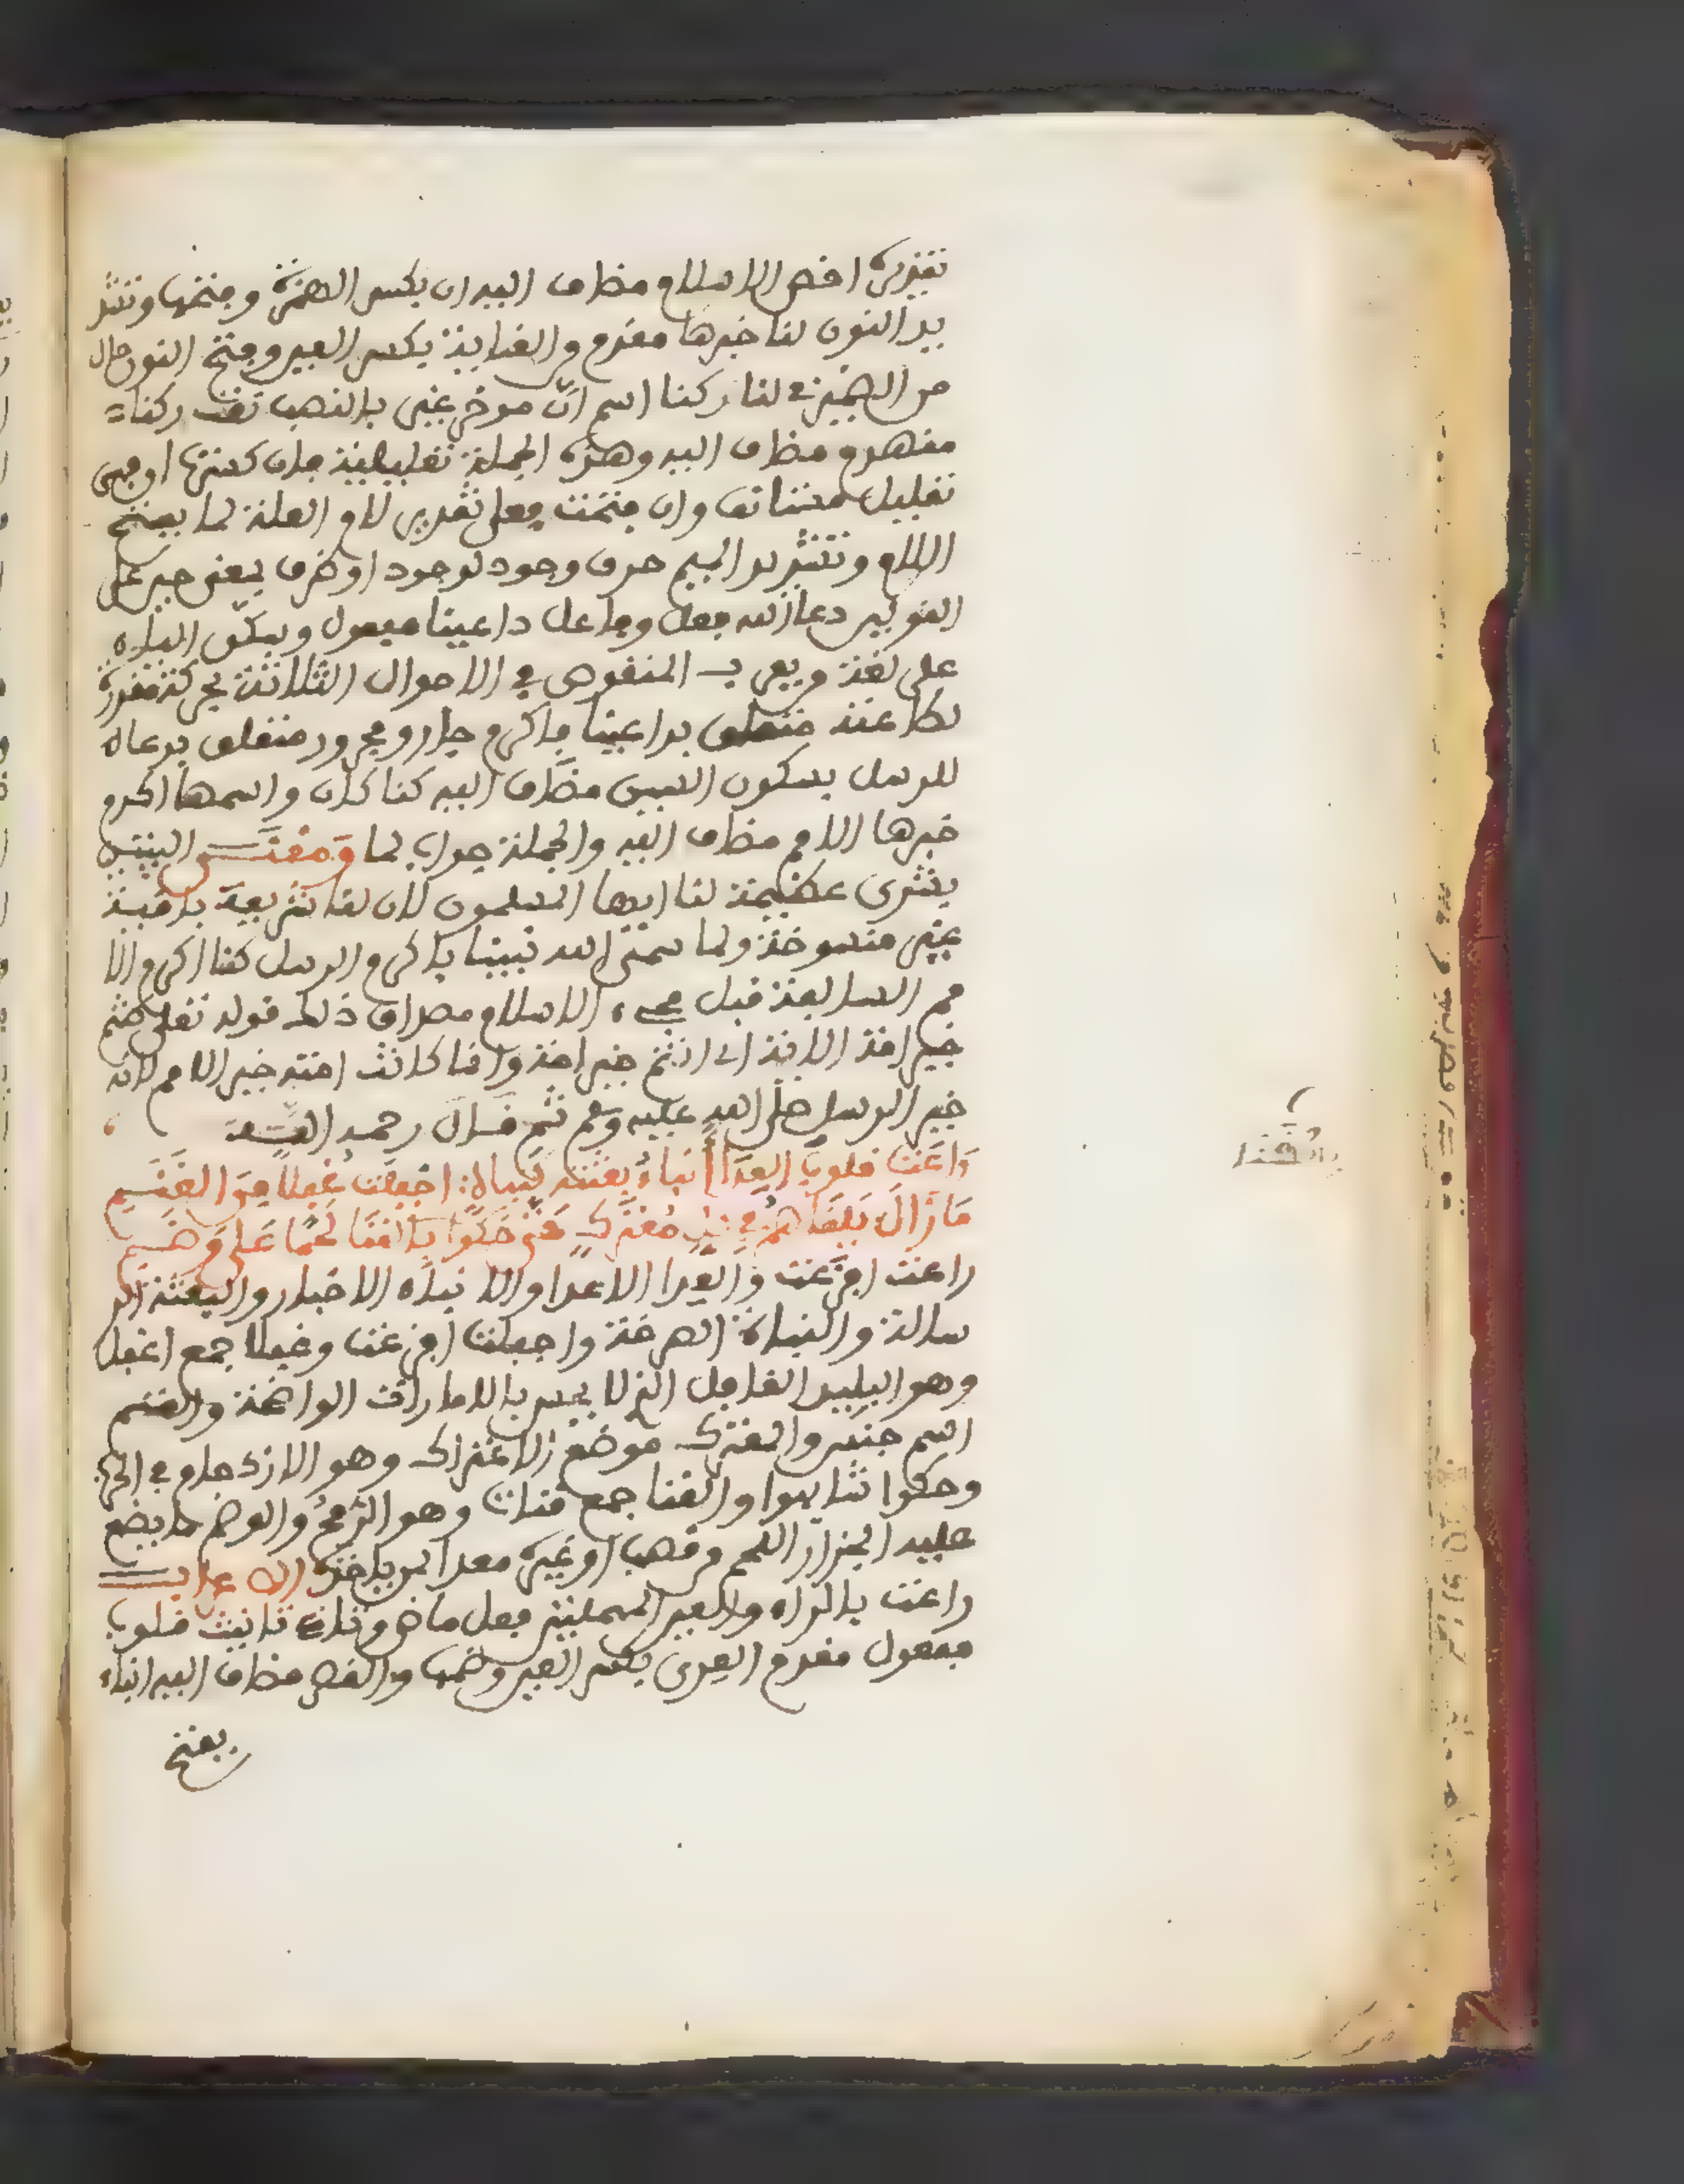 تقديره اخص الاسلام مضاف اليه ان بكسر الهمزة وفتحها وتشد
يد النون لنا خبرها مقدم والعناية بكسر العين وفتح النون حال
من الضمير في لنا ركنا اسم ان موخر غير بالنصب نعت ركنا
منهدم مضاف اليه وهذه الجملة تعليلية فان كسرتها اوهى
تعليل مستانف وان فتحت فعلى تقدير لام العلة لما بفتح
اللام وتشديد الميم حرف وجود لوجود او ظرف بمعنى حين على
القولين دعا الله فعل وفاعل داعينا مفعول وسكن الياء
على لغة من يعرب المنقوص في الاحوال الثلاثة بحركة مقدرة
لطاعته متعلق بداعينا باكرم جار ومجرور متعلق بدعاه
للرسل بسكون السين مضاف اليه كنا كان واسمها اكرم
خبرها الامم مضاف اليه والجملة جواب لما ومعنى البيتين
بشرى عظيمة لنا ايها المسلمون لان لنا شريعة باقية
غير منسوخة ولما سمى الله نبينا باكرم الرسل كنا اكرم الا
مم السابقة قبل مجيء الاسلام مصداق ذلك قوله تعلى كنتم
خير امة الاية اي انتم خير امة وانما كانت امته خير الامم لانه
خير الرسل صلى الله عليه وسلم ثم قال رحمه الله
راعت قلوب العدا انباء بعثته كنباة اجفلت غفلا من الغنم
ما زال يلقاهم في كل معترك حتى حكوا بالقنا لحما على وضم
راعت افزعت والعدا الاعدا والانباء الاخبار والبعثة الر
سالة والنباة الصرخة واجفلت افزعت وغفلا جمع اغفل
وهو البليد الغافل الذي لا يحس بالامارات الواضحة والغنم
اسم جنس والمعترك موضع الاعتراك وهو الازدحام في الحرب
وحكوا شابهوا والقنا جمع قنات وهو الرمح والوضم ما يضع
عليه الجزار اللحم من قصب او غيره معدا لمن ياخذه الاعراب
راعت بالراء والعين المهملتين فعل ماض وتاء تانيث قلوب
مفعول مقدم العدى بكسر العين وضمها والقصر مضاف اليه انباء
بفتح